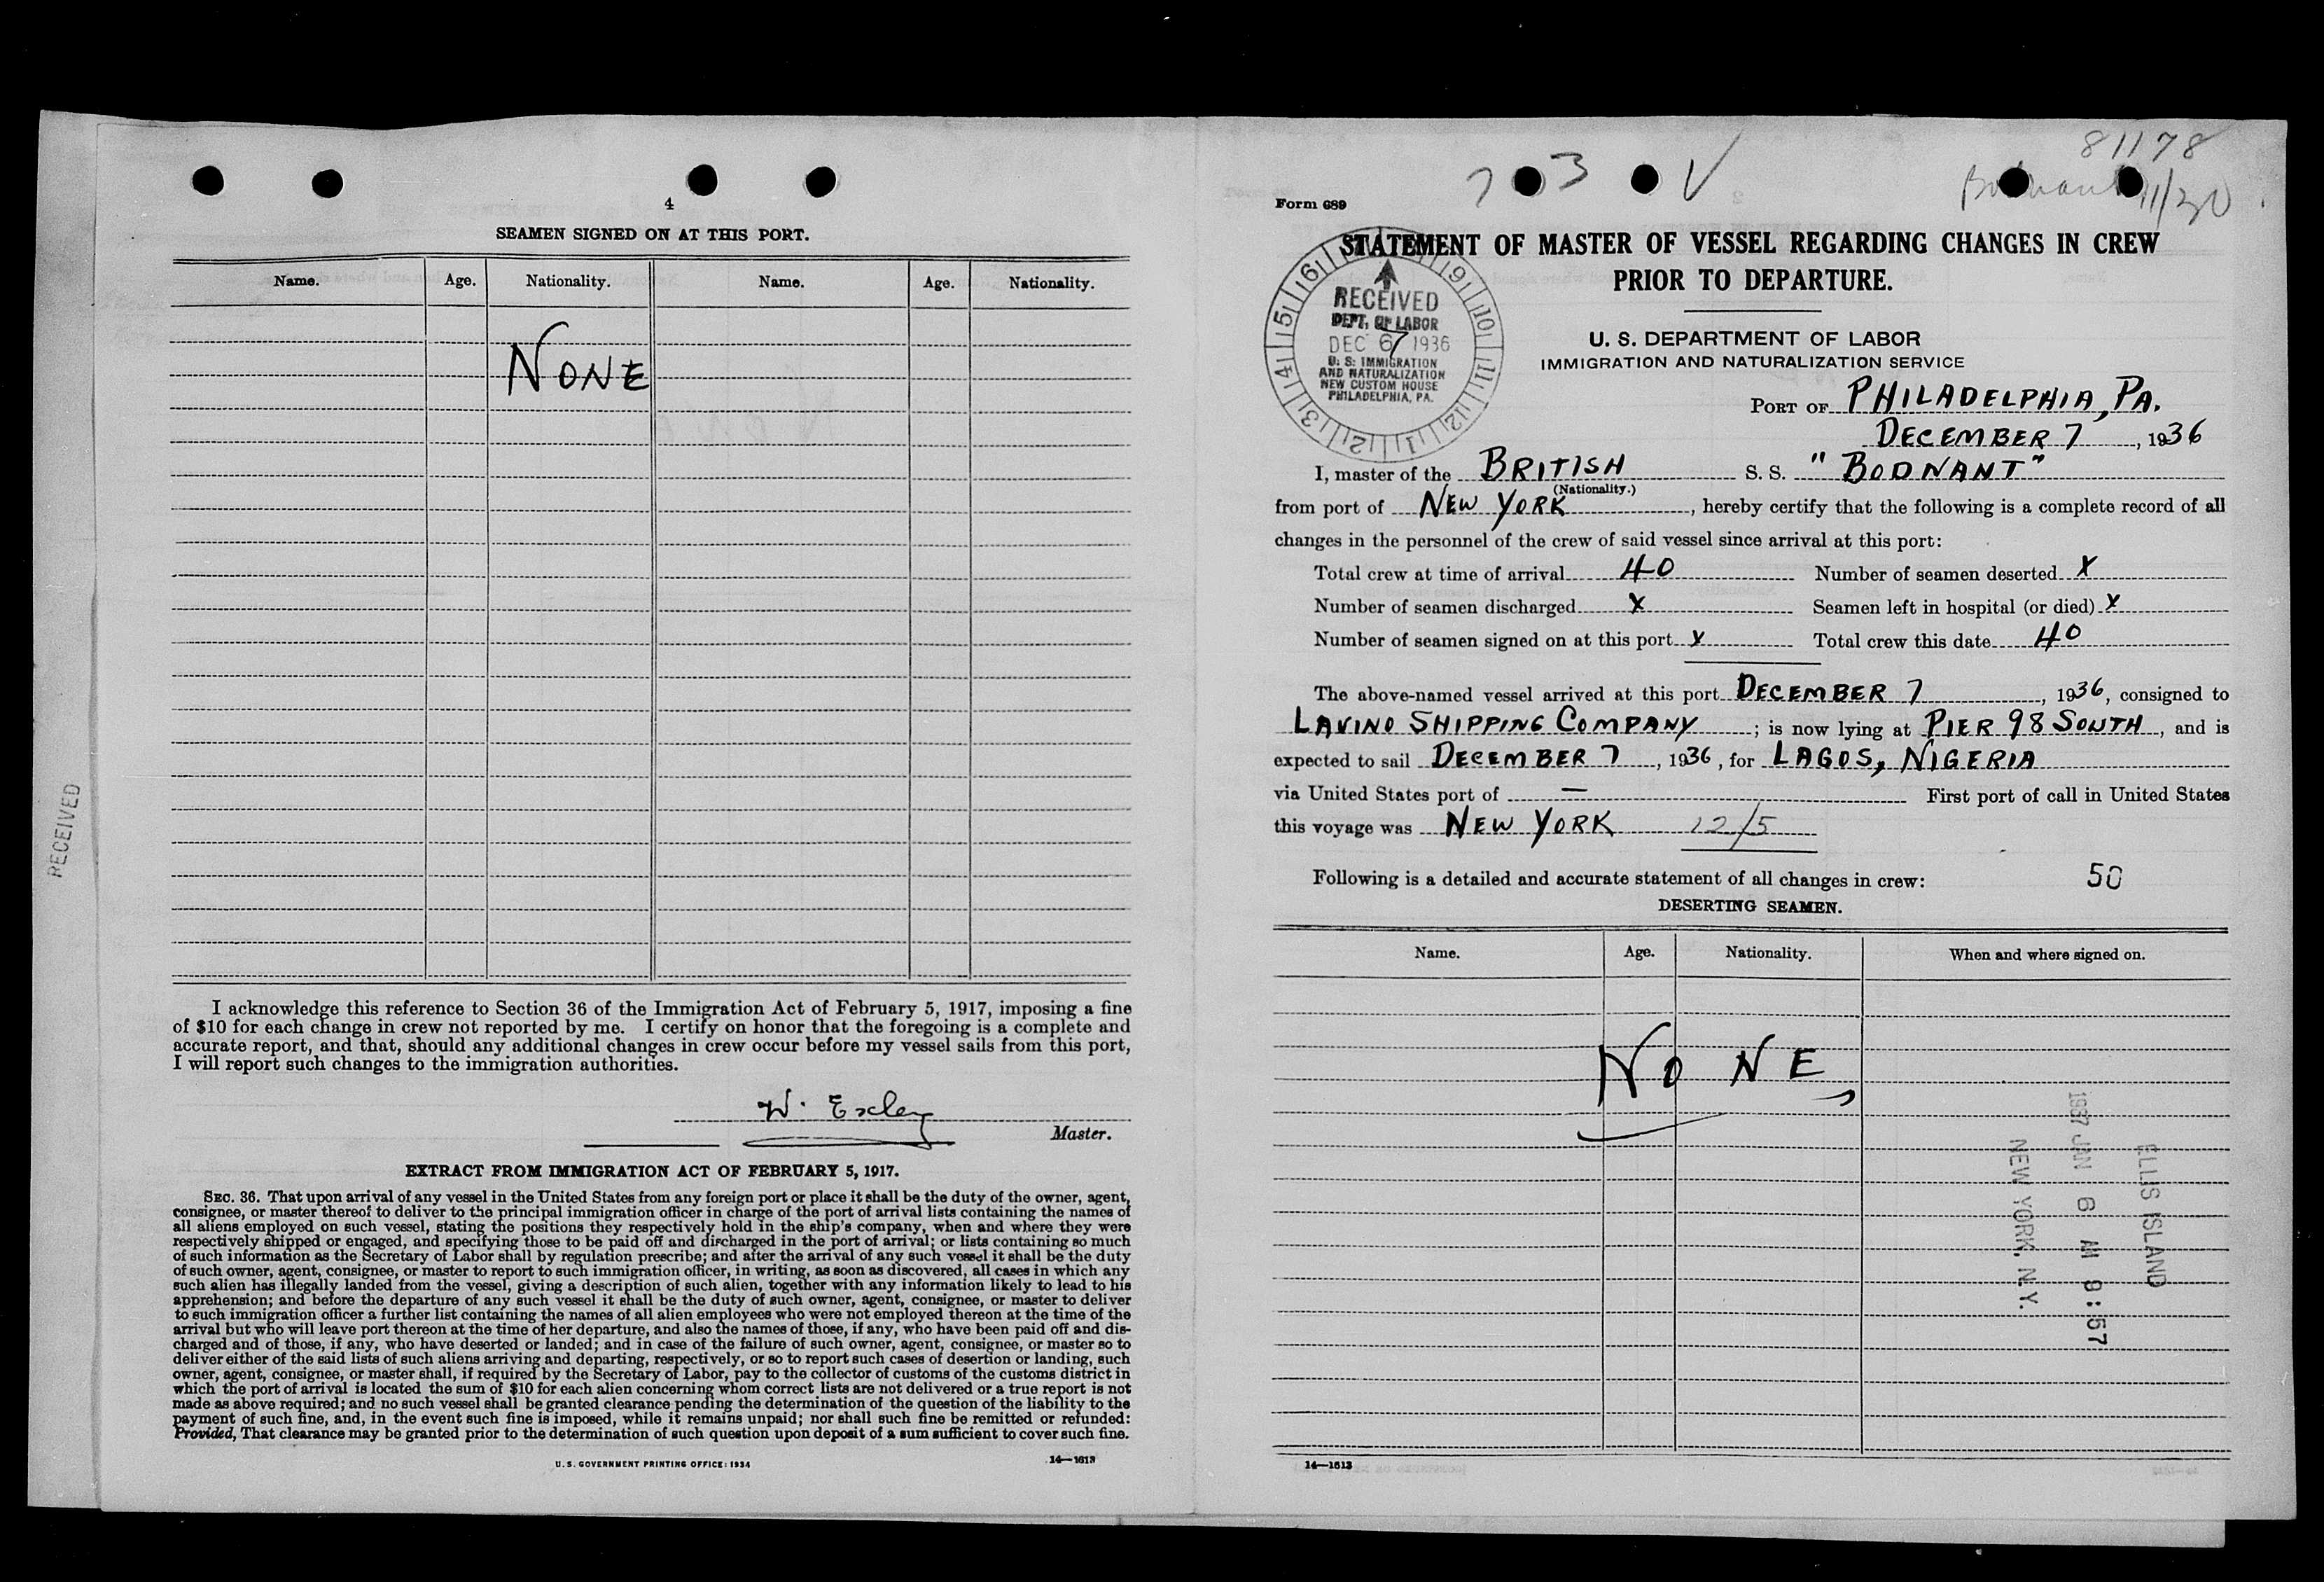 4
SEAMEN SIGNED ON AT THIS PORT.
Name. Age. Nationality. Name. Age. Nationality.
NONE
I acknowledge this reference to Section 36 of the Immigration Act of February 5, 1917, imposing a fine
of $10 for each change in crew not reported by me. I certify on honor that the foregoing is a complete and
accurate report, and that, should any additional changes in crew occur before my vessel sails from this port,
I will report such changes to the immigration authorities.
W. Exley
Master.
EXTRACT FROM IMMIGRATION ACT OF FEBRUARY 5, 1917.
SEC. 36. That upon arrival of any vessel in the United States from any foreign port or place it shall be the duty of the owner, agent,
consignee, or master thereof to deliver to the principal immigration officer in charge of the port of arrival lists containing the names of
all aliens employed on such vessel, stating the positions they respectively hold in the ship's company, when and where they were
respectively shipped or engaged, and specifying those to be paid off and discharged in the port of arrival; or lists containing so much
of such information as the Secretary of Labor shall by regulation prescribe; and after the arrival of any such vessel it shall be the duty
of such owner, agent, consignee, or master to report to such immigration officer, in writing, as soon as discovered, all cases in which any
such alien has illegally landed from the vessel, giving a description of such alien, together with any information likely to lead to his
apprehension; and before the departure of any such vessel it shall be the duty of such owner, agent, consignee, or master to deliver
to such immigration officer a further list containing the names of all alien employees who were not employed thereon at the time of the
arrival but who will leave port thereon at the time of her departure, and also the names of those, if any, who have been paid off and dis-
charged and of those, if any, who have deserted or landed; and in case of the failure of such owner, agent, consignee, or master so to
deliver either of the said lists of such aliens arriving and departing, respectively, or so to report such cases of desertion or landing, such
owner, agent, consignee, or master shall, if required by the Secretary of Labor, pay to the collector of customs of the customs district in
which the port of arrival is located the sum of $10 for each alien concerning whom correct lists are not delivered or a true report is not
made as above required; and no such vessel shall be granted clearance pending the determination of the question of the liability to the
payment of such fine, and, in the event such fine is imposed, while it remains unpaid; nor shall such fine be remitted or refunded:
Provided, That clearance may be granted prior to the determination of such question upon deposit of a sum sufficient to cover such fine.
U. S. GOVERNMENT PRINTING OFFICE: 1934 14—1613
RECEIVED
81178
Bodnant 11/30
7 3 V
Form 689
STATEMENT OF MASTER OF VESSEL REGARDING CHANGES IN CREW
PRIOR TO DEPARTURE.
RECEIVED
DEPT. OF LABOR
DEC 7 1936
U. S. IMMIGRATION
AND NATURALIZATION
NEW CUSTOM HOUSE
PHILADELPHIA, PA.
U. S. DEPARTMENT OF LABOR
IMMIGRATION AND NATURALIZATION SERVICE
PORT OF PHILADELPHIA, PA.
DECEMBER 7, 1936
I, master of the BRITISH S. S. "BODNANT"
(Nationality.)
from port of NEW YORK, hereby certify that the following is a complete record of all
changes in the personnel of the crew of said vessel since arrival at this port:
Total crew at time of arrival 40 Number of seamen deserted X
Number of seamen discharged X Seamen left in hospital (or died) X
Number of seamen signed on at this port X Total crew this date 40
The above-named vessel arrived at this port DECEMBER 7, 1936, consigned to
LAVINO SHIPPING COMPANY; is now lying at PIER 98 SOUTH, and is
expected to sail DECEMBER 7, 1936, for LAGOS, NIGERIA
via United States port of — First port of call in United States
this voyage was NEW YORK 12/5
Following is a detailed and accurate statement of all changes in crew: 50
DESERTING SEAMEN.
Name. Age. Nationality. When and where signed on.
NONE
ELLIS ISLAND
1937 JAN 6 AM 9:57
NEW YORK, N.Y.
14—1613